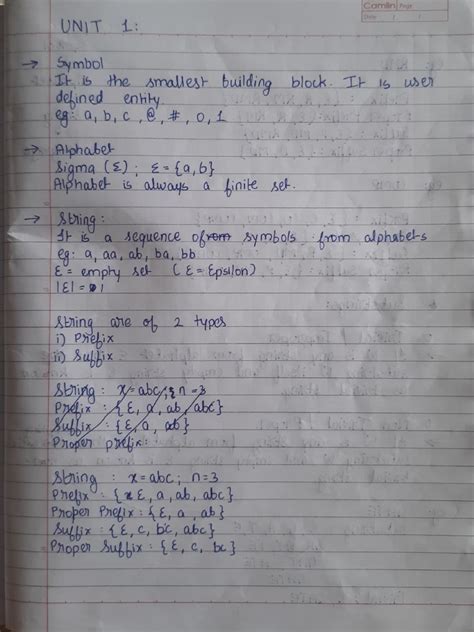 Camlin Page
Date / /
UNIT 1:
→ Symbol
It is the smallest building block. It is user
defined entity.
eg: a, b, c, @, #, 0, 1
→ Alphabet
Sigma (Σ) ; Σ = {a, b}
Alphabet is always a finite set.
→ String:
It is a sequence of from symbols from alphabets
eg: a, aa, ab, ba, bb
Ɛ = empty set (Ɛ = Epsilon)
|Ɛ| = 1
String are of 2 types
i) Prefix
ii) Suffix
String : x = abc ; n = 3
Prefix : {Ɛ, a, ab, abc}
Suffix : {Ɛ, a, ab}
Proper prefix:
String : x = abc ; n = 3
Prefix : {Ɛ, a, ab, abc}
Proper Prefix : {Ɛ, a, ab}
Suffix : {Ɛ, c, bc, abc}
Proper Suffix : {Ɛ, c, bc}